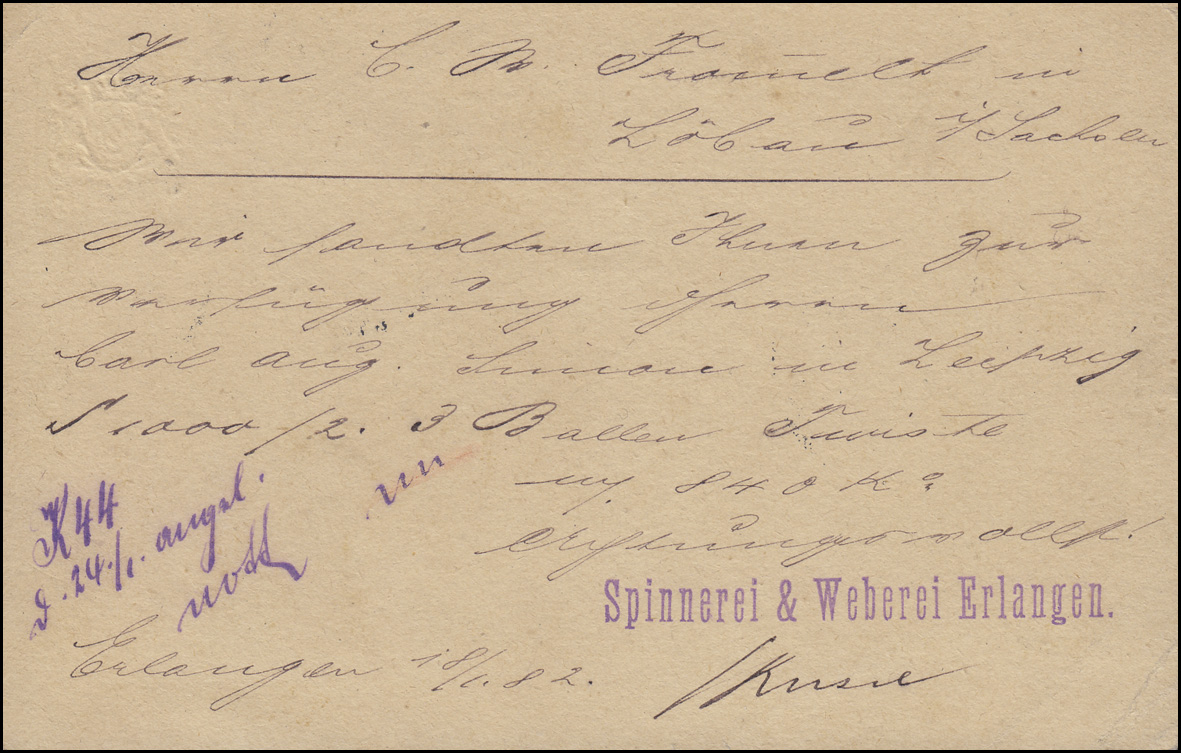 Herrn C. W. Fromelt in
Löbau i/Sachsen
Wir sandten Ihnen zur
Verfügung Herrn
Carl Aug. Simon in Leipzig
1000/2. 3 Ballen Twiste
840 Ko
Achtungsvollst!
Spinnerei & Weberei Erlangen.
K 44
d. 24./1. angel.
Erlangen 18/1. 82.